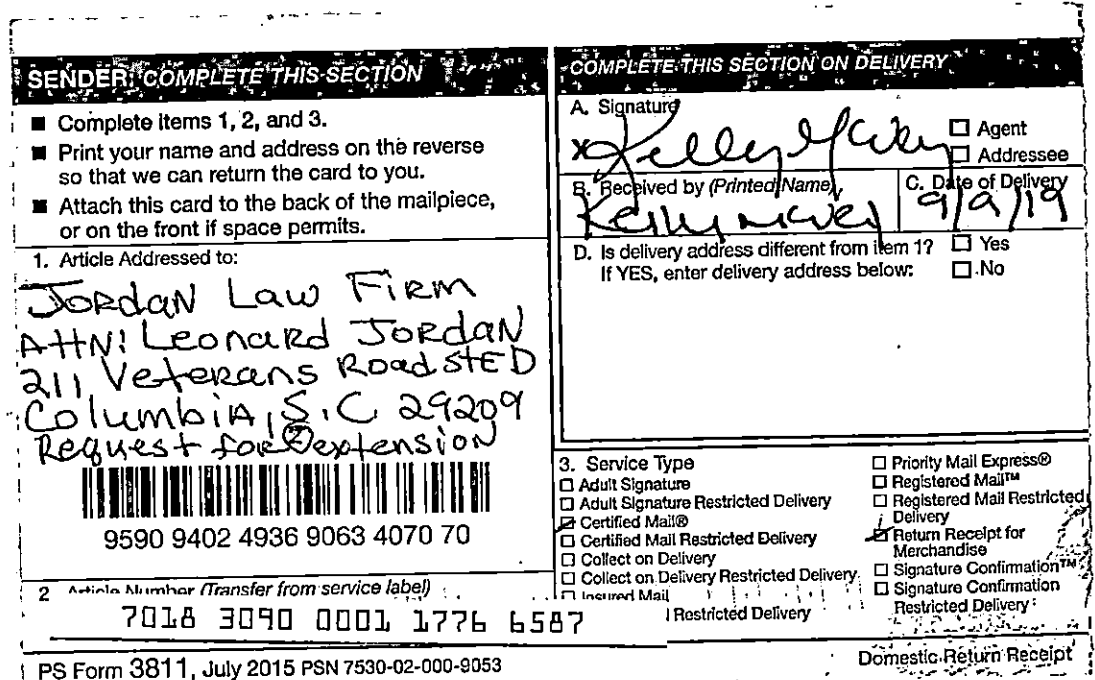 SENDER: COMPLETE THIS SECTION
■ Complete items 1, 2, and 3.
■ Print your name and address on the reverse
so that we can return the card to you.
■ Attach this card to the back of the mailpiece,
or on the front if space permits.
1. Article Addressed to:
JORDAN LAW FIRM
ATTN: Leonard JORDAN
211 Veterans Road STE D
Columbia, S.C. 29209
Request for 2 extension
9590 9402 4936 9063 4070 70
2 Article Number (Transfer from service label)
7018 3090 0001 1776 6587
PS Form 3811, July 2015 PSN 7530-02-000-9053
COMPLETE THIS SECTION ON DELIVERY
A. Signature
X Kelly McVey
☐ Agent
☐ Addressee
B. Received by (Printed Name)
Kelly McVey
C. Date of Delivery
9/9/19
D. Is delivery address different from item 1? ☐ Yes
If YES, enter delivery address below: ☐ No
3. Service Type
☐ Adult Signature
☐ Adult Signature Restricted Delivery
☑ Certified Mail®
☐ Certified Mail Restricted Delivery
☐ Collect on Delivery
☐ Collect on Delivery Restricted Delivery
☐ Insured Mail
Restricted Delivery
☐ Priority Mail Express®
☐ Registered Mail™
☐ Registered Mail Restricted
Delivery
☑ Return Receipt for
Merchandise
☐ Signature Confirmation™
☐ Signature Confirmation
Restricted Delivery
Domestic Return Receipt